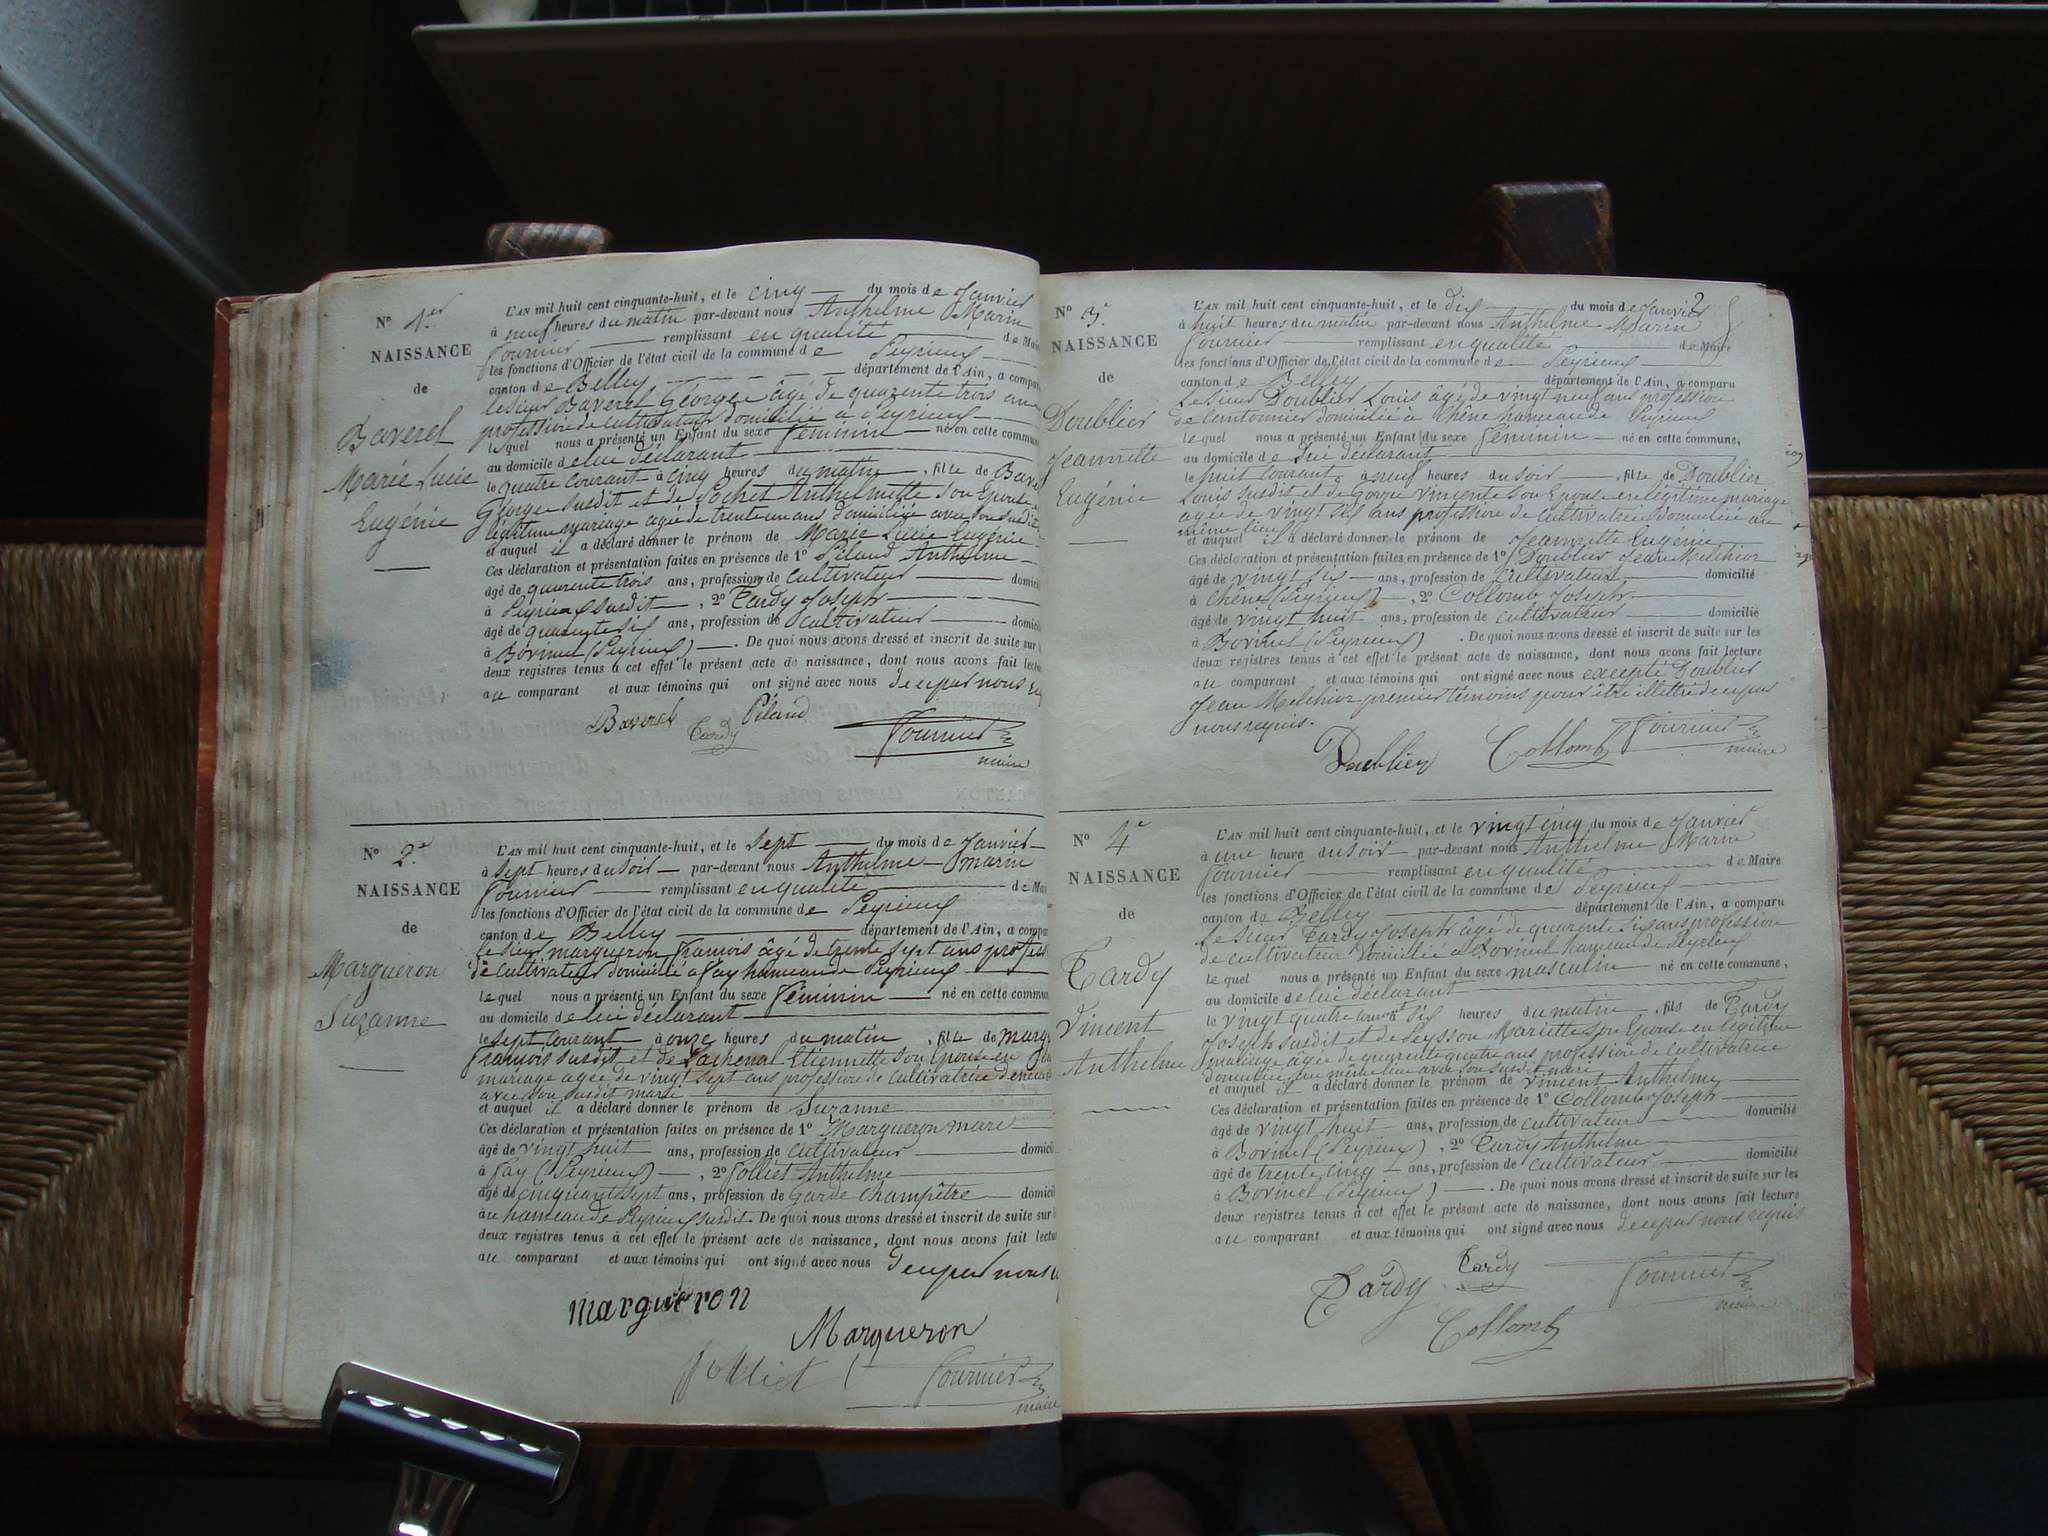 N° 1.er
NAISSANCE
de
Baverel
Marie Lucie
Eugénie
L'AN mil huit cent cinquante-huit, et le cinq du mois de Janvier
à neuf heures du matin par-devant nous Anthelme Marin
Fournier remplissant en qualité de Maire
les fonctions d'Officier de l'état civil de la commune de Peyrieux
canton de Belley département de l'Ain, a comparu
le sieur Baverel George âgé de quarante trois ans
profession de cultivateur domicilié à Peyrieux
lequel nous a présenté un Enfant du sexe féminin né en cette commune
au domicile de lui déclarant
le quatre courant à cinq heures du matin, fille de Bave
George susdit et de Pochet Anthelmette son Epouse
légitime mariage agée de trente un ans domiciliée avec son susdit
et auquel il a déclaré donner le prénom de Marie Lucie Eugénie
Ces déclaration et présentation faites en présence de 1° Piland Anthelme
âgé de quarante trois ans, profession de cultivateur domici
à Peyrieux susdit, 2° Tardy Joseph
âgé de quarante six ans, profession de cultivateur domici
à Bovinel (Peyrieux). De quoi nous avons dressé et inscrit de suite sur
deux registres tenus à cet effet le présent acte de naissance, dont nous avons fait lecture
au comparant et aux témoins qui ont signé avec nous de ce par nous
Baverel Tardy Piland Fournier
maire
N° 2.e
NAISSANCE
de
Margueron
Suzanne
L'AN mil huit cent cinquante-huit, et le sept du mois de Janvier
à sept heures du soir par-devant nous Anthelme Marin
Fournier remplissant en qualité de Mai
les fonctions d'Officier de l'état civil de la commune de Peyrieux
canton de Belley département de l'Ain, a compar
le sieur Margueron François âgé de trente sept ans profess
de cultivateur domicilié à Fay hameau de Peyrieux
lequel nous a présenté un Enfant du sexe féminin né en cette commun
au domicile de lui déclarant
le sept courant à onze heures du matin, fille de Marg
François susdit et de Lachenal Etiennette son Epouse en
mariage agée de vingt sept ans profession de cultivatrice demeur
avec son susdit mari
et auquel il a déclaré donner le prénom de Suzanne
Ces déclaration et présentation faites en présence de 1° Margueron marc
âgé de vingt huit ans, profession de cultivateur domici
à Fay (Peyrieux), 2° Jolliet Anthelme
âgé de cinquante sept ans, profession de Garde champêtre domici
au hameau de Peyrieux susdit. De quoi nous avons dressé et inscrit de suite sur
deux registres tenus à cet effet le présent acte de naissance, dont nous avons fait lectu
au comparant et aux témoins qui ont signé avec nous de ce par nous
margueron
Margueron
Jolliet Fournier
maire
2
N° 3.e
NAISSANCE
de
Doublier
Jeannette
Eugénie
L'AN mil huit cent cinquante-huit, et le dix du mois de Janvier
à huit heures du matin par-devant nous Anthelme Marin
Fournier remplissant en qualité de Maire
les fonctions d'Officier de l'état civil de la commune de Peyrieux
canton de Belley département de l'Ain, a comparu
le sieur Doublier Louis âgé de vingt neuf ans profession
de cantonnier domicilié à Chêne hameau de Peyrieux
lequel nous a présenté un Enfant du sexe féminin né en cette commune,
au domicile de lui déclarant
le huit courant à neuf heures du soir, fille de Doublier
Louis susdit et de Goyse Vincente son Epouse en légitime mariage
agée de vingt six ans profession de cultivatrice domiciliée au
même lieu
et auquel il a déclaré donner le prénom de Jeannette Eugénie
Ces déclaration et présentation faites en présence de 1° Doublier Jean Melchior
âgé de vingt six ans, profession de cultivateur domicilié
à Chêne (Peyrieux), 2° Collomb Joseph
âgé de vingt huit ans, profession de cultivateur domicilié
à Bovinel (Peyrieux). De quoi nous avons dressé et inscrit de suite sur les
deux registres tenus à cet effet le présent acte de naissance, dont nous avons fait lecture
au comparant et aux témoins qui ont signé avec nous excepté Doublier
Jean Melchior premier témoins pour être illettré de ce par
nous requis.
Doublier Collomb Fournier
maire
N° 4.e
NAISSANCE
de
Tardy
Vincent
Anthelme
L'AN mil huit cent cinquante-huit, et le vingt cinq du mois de Janvier
à une heure du soir par-devant nous Anthelme Marin
Fournier remplissant en qualité de Maire
les fonctions d'Officier de l'état civil de la commune de Peyrieux
canton de Belley département de l'Ain, a comparu
le sieur Tardy Joseph âgé de quarante six ans profession
de cultivateur domicilié à Bovinel hameau de Peyrieux
lequel nous a présenté un Enfant du sexe masculin né en cette commune,
au domicile de lui déclarant
le vingt quatre courant à six heures du matin, fils de Tardy
Joseph susdit et de Peysson Mariette son Epouse en légitime
mariage âgée de quarante quatre ans profession de cultivatrice
domiciliée au même lieu avec son susdit mari
et auquel il a déclaré donner le prénom de Vincent Anthelme
Ces déclaration et présentation faites en présence de 1° Collomb Joseph
âgé de vingt huit ans, profession de cultivateur domicilié
à Bovinel (Peyrieux), 2° Tardy Anthelme
âgé de trente cinq ans, profession de cultivateur domicilié
à Bovinel (Peyrieux). De quoi nous avons dressé et inscrit de suite sur les
deux registres tenus à cet effet le présent acte de naissance, dont nous avons fait lecture
au comparant et aux témoins qui ont signé avec nous de ce par nous requis
Tardy Tardy Fournier
maire
Collomb